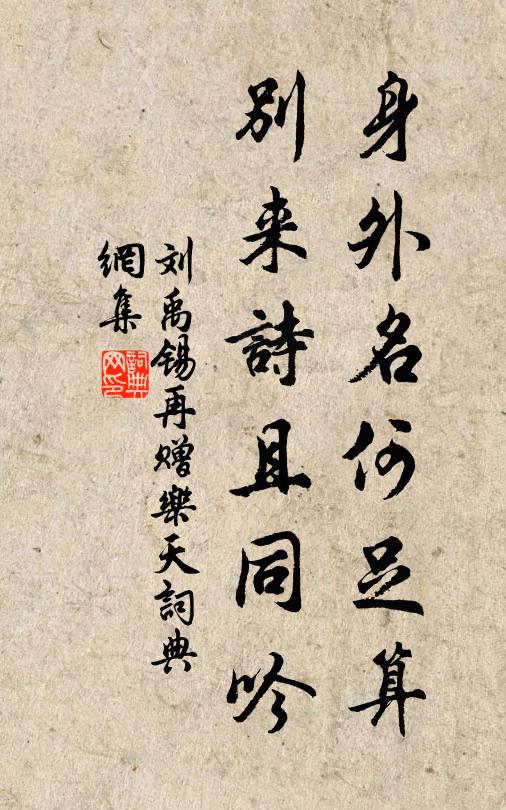 身外名何足算
别来詩且同吟
刘禹锡再赠樂天詞典
網集
詞典网印